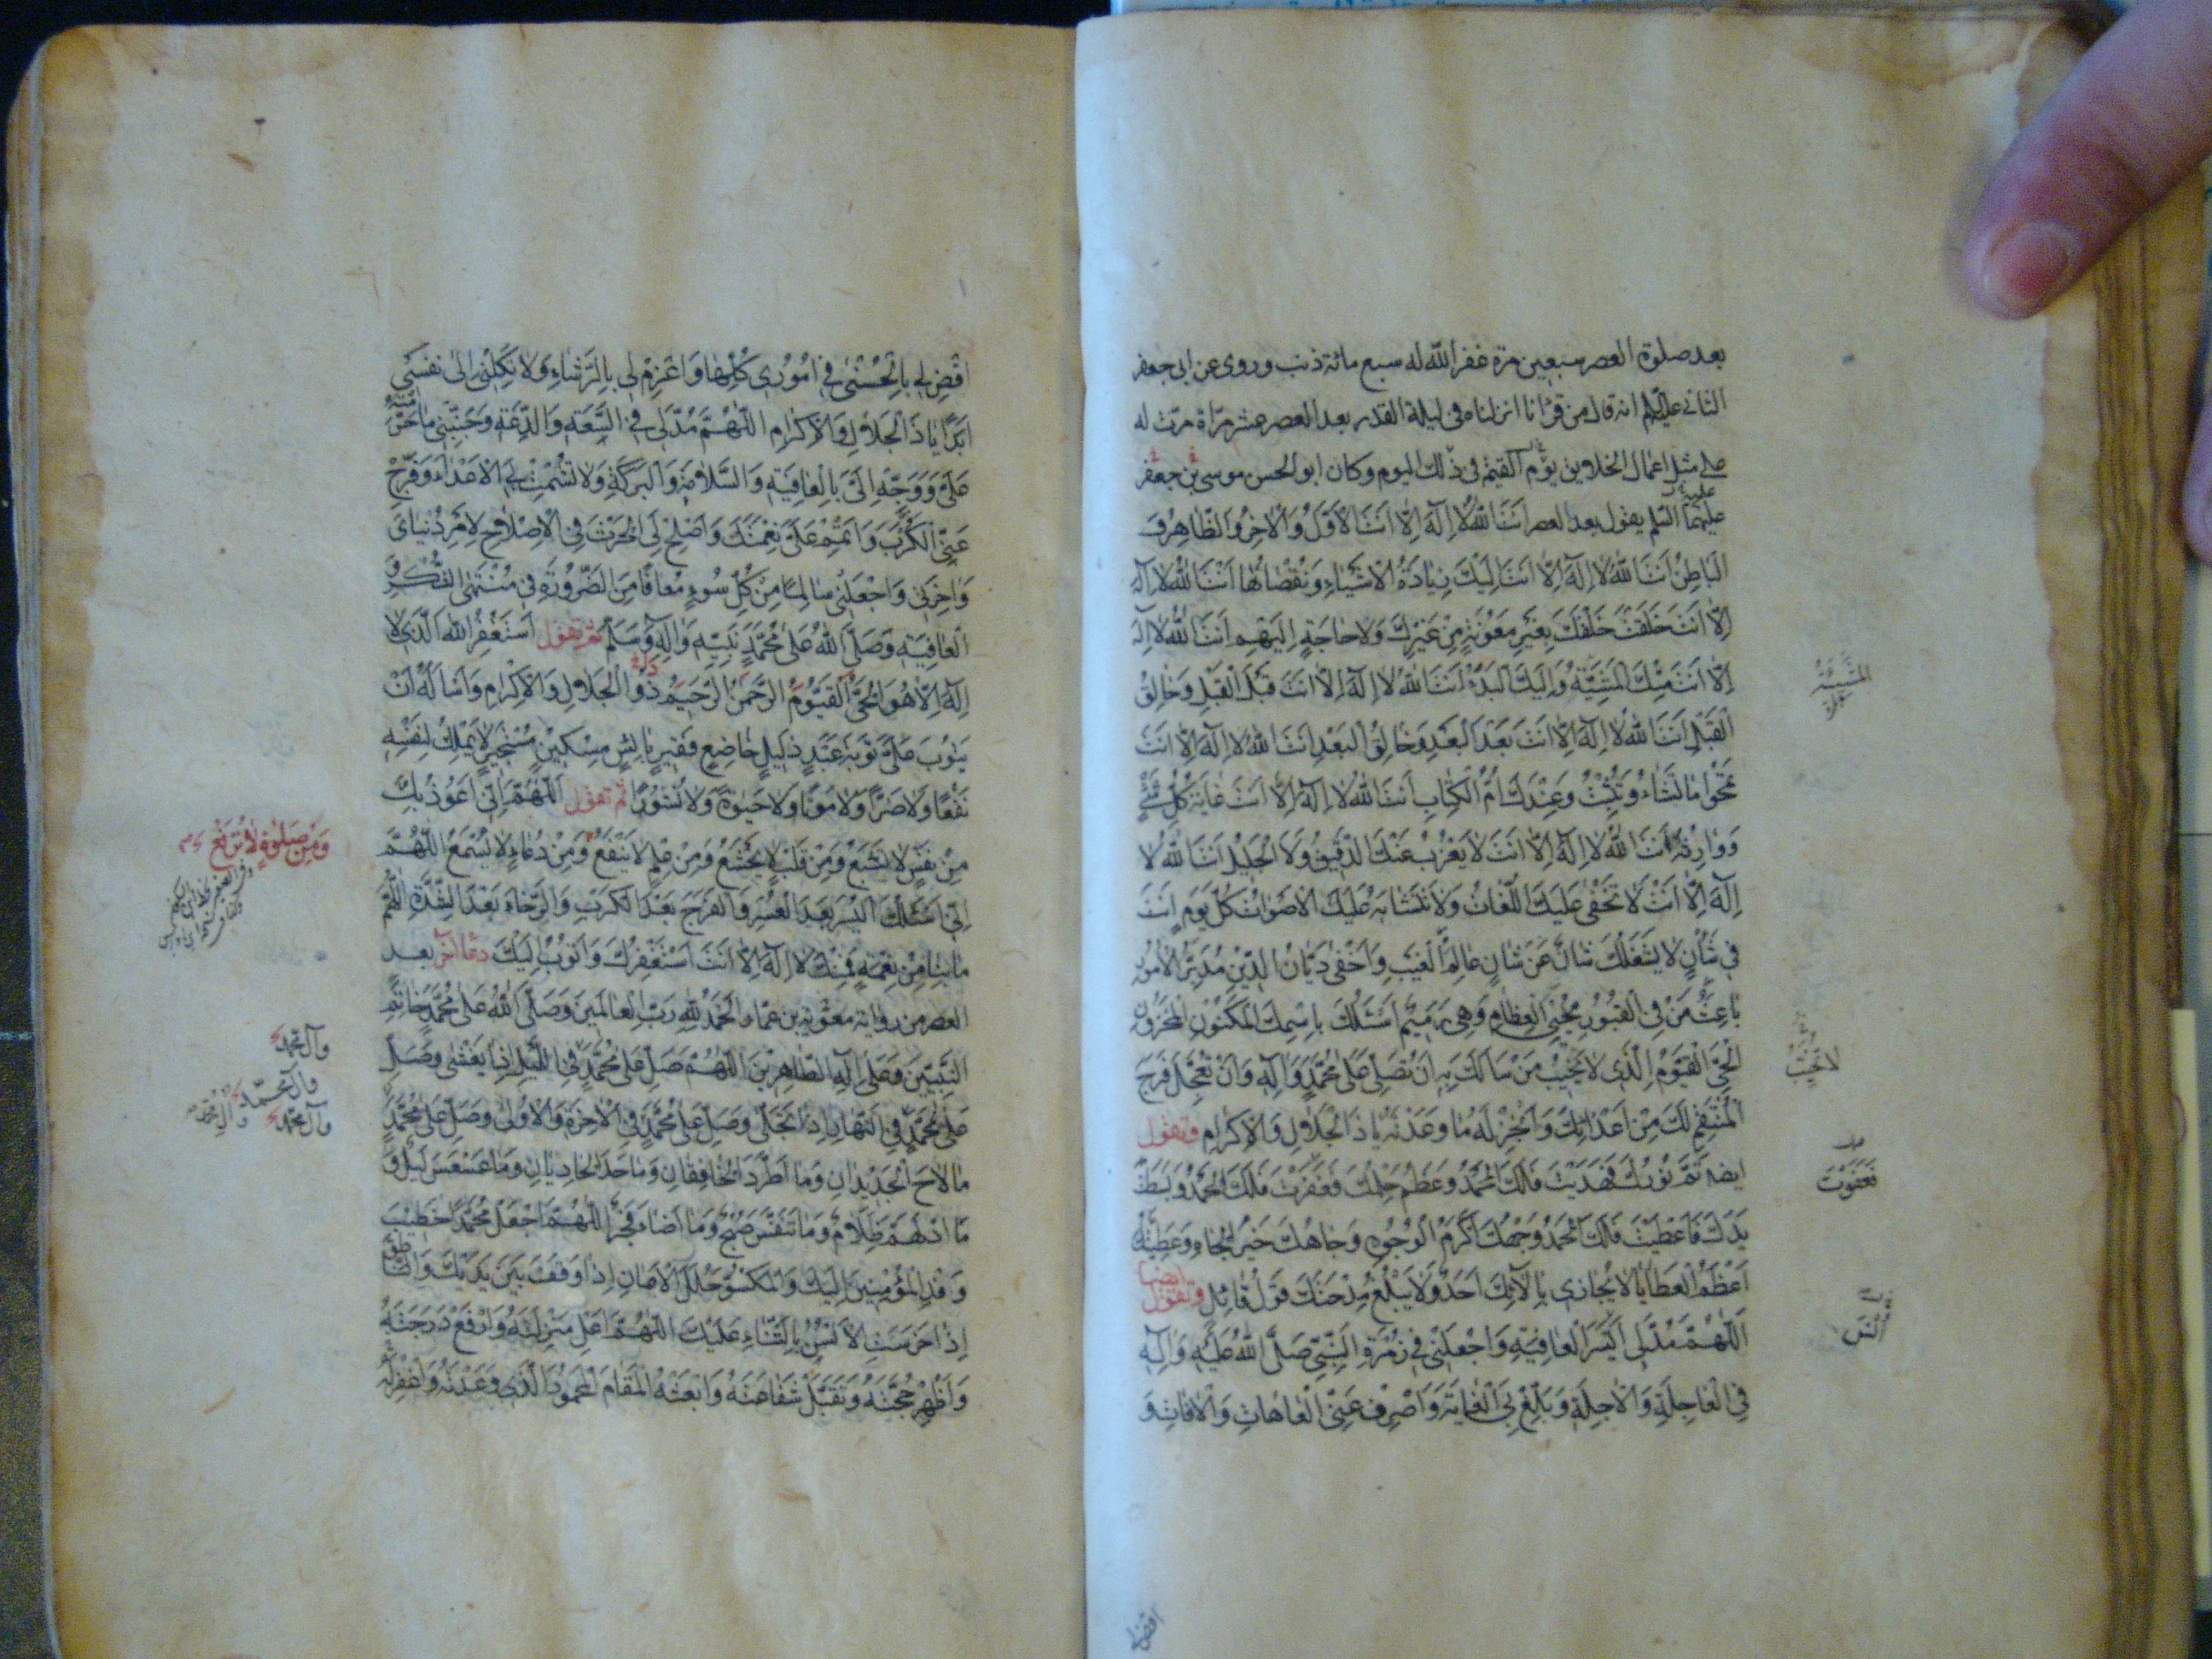 بعد صلوة العصر سبعين مرة غفر الله له سبع مائة ذنب وروى عن ابى جعفر
الثانى عليلم انه قال من قرٔ انا انزلناه فى ليلة القدر بعد العصر عشر مرّاة مرّت له
على مثل اعمال الخلايق يوم القيمة فى ذلك اليوم وكان ابو الحسن موسى بن جعفر
عليهما السّلم يقول بعد العصر اَنْتَ اللهُ لا اِلٰهَ اِلّا اَنْتَ الاَوَّلُ وَالاٰخِرُ وَالظّاهِرُ وَ
الْباطِنُ اَنْتَ اللهُ لا اِلٰهَ اِلّا اَنْتَ اِلَيْكَ زِيادَةُ الاَشْياءِ وَنُقْصانُها اَنْتَ اللهُ لا اِلٰهَ
اِلّا اَنْتَ خَلَقْتَ خَلْقَكَ بِغَيْرِ مَعُونَةٍ مِنْ غَيْرِكَ وَلا حاجَةٍ اِلَيْهِمْ اَنْتَ اللهُ لا اِلٰهَ
اِلّا اَنْتَ مِنْكَ الْمَشِيَّةُ وَاِلَيْكَ الْبَدْءُ اَنْتَ اللهُ لا اِلٰهَ اِلّا اَنْتَ قَبْلَ الْقَبْلِ وَخالِقُ
الْقَبْلِ اَنْتَ اللهُ لا اِلٰهَ اِلّا اَنْتَ بَعْدَ الْبَعْدِ وَخالِقُ الْبَعْدِ اَنْتَ اللهُ لا اِلٰهَ اِلّا اَنْتَ
تَمْحُوا ما تَشاءُ وَتُثْبِتُ وَعِنْدَكَ اُمُّ الْكِتابِ اَنْتَ اللهُ لا اِلٰهَ اِلّا اَنْتَ غايَةُ كُلِّ شَىْءٍ
وَوارِثُهُ اَنْتَ اللهُ لا اِلٰهَ اِلّا اَنْتَ لا يَعْزُبُ عَنْكَ الدَّقيقُ وَلَا الْجَليلُ اَنْتَ اللهُ لا
اِلٰهَ اِلّا اَنْتَ لا تَخْفٰى عَلَيْكَ اللُّغاتُ وَلا تَتَشابَهُ عَلَيْكَ الاَصْواتُ كُلَّ يَوْمٍ اَنْتَ
فى شَأْنٍ لا يَشْغَلُكَ شانٌ عَنْ شانٍ عالِمُ الْغَيْبِ وَاَخْفٰى دَيّانُ الدّينِ مُدَبِّرُ الاُمُورِ
باعِثُ مَنْ فِى الْقُبُورِ مُحْيِى الْعِظامِ وَهِىَ رَميمٌ اَسْئَلُكَ بِاسْمِكَ الْمَكْنُونِ الْمَخْزُونِ
الْحَىِّ الْقَيُّومِ الَّذى لا يَخيبُ مَنْ سَأَلَكَ بِهِ اَنْ تُصَلِّىَ عَلىٰ مُحَمَّدٍ وَاٰلِهِ وَاَنْ تُعَجِّلَ فَرَجَ
الْمُنْتَقِمِ لَكَ مِنْ اَعْدائِكَ وَاَنْجِزْ لَهُ ما وَعَدْتَهُ يا ذَا الْجَلالِ وَالاِكْرامِ وتقول
ايضا تَمَّ نُورُكَ فَهَدَيْتَ فَلَكَ الْحَمْدُ وَعَظُمَ حِلْمُكَ فَغَفَرْتَ فَلَكَ الْحَمْدُ وَبَسَطْتَ
يَدَكَ فَاَعْطَيْتَ فَلَكَ الْحَمْدُ وَجْهُكَ اَكْرَمُ الْوُجُوهِ وَجاهُكَ خَيْرُ الْجاهِ وَعَطِيَّتُكَ
اَعْظَمُ الْعَطايا لا يُجازى بِاٰلائِكَ اَحَدٌ وَلا يَبْلُغُ مِدْحَتَكَ قَوْلُ قائِلٍ وتقول ايضا
اَللّٰهُمَّ مُدَّ لى اَيْسَرَ الْعافِيَةِ وَاجْعَلْنى فى زُمْرَةِ النَّبِىِّ صَلَّى اللهُ عَلَيْهِ وَاٰلِهِ
فِى الْعاجِلَةِ وَالاٰجِلَةِ وَبَلِّغْ بِىَ الْغايَةَ وَاصْرِفْ عَنِّى الْعاهاتِ وَالاٰفاتِ وَ
المشيّة
لا تخيّب
فَعَفَوْتَ
اقض
اقْضِ لى بِالْحُسْنىٰ فى اُمُورى كُلِّها وَاعْزِمْ لى بِالرَّشادِ وَلا تَكِلْنى اِلىٰ نَفْسى
اَبَدًا يا ذَا الْجَلالِ وَالاِكْرامِ اَللّٰهُمَّ مُدَّ لى فِى السَّعَةِ وَالدَّعَةِ وَجَنِّبْنى ما حَرَّمْتَهُ
عَلَىَّ وَوَجِّهْ اِلَىَّ بِالْعافِيَةِ وَالسَّلامَةِ وَالْبَرَكَةِ وَلا تُشْمِتْ بِىَ الاَعْداءَ وَفَرِّجْ
عَنِّى الْكَرْبَ وَاَتْمِمْ عَلَىَّ نِعْمَتَكَ وَاَصْلِحْ لِىَ الْحَرْثَ فِى الاِصْلاحِ لاَمْرِ دُنْياىَ
وَاٰخِرَتى وَاجْعَلْنى سالِمًا مِنْ كُلِّ سُوءٍ مُعافًا مِنَ الضَّرُورَةِ فى مُنْتَهَى الشُّكْرِ وَ
الْعافِيَةِ وَصَلَّى اللهُ عَلىٰ مُحَمَّدٍ نَبِيِّهِ وَاٰلِهِ وَسَلَّمَ ثم تقول اَسْتَغْفِرُ اللهَ الَّذى لا
اِلٰهَ اِلّا هُوَ الْحَىُّ الْقَيُّومُ الرَّحْمٰنُ الرَّحيمُ ذُو الْجَلالِ وَالاِكْرامِ وَاَسْأَلُهُ اَنْ
يَتُوبَ عَلَىَّ تَوْبَةَ عَبْدٍ ذَليلٍ خاضِعٍ فَقيرٍ بائِسٍ مِسْكينٍ مُسْتَجيرٍ لا يَمْلِكُ لِنَفْسِهِ
نَفْعًا وَلا ضَرًّا وَلا مَوْتًا وَلا حَيٰوةً وَلا نُشُورًا ثم تقول اَللّٰهُمَّ اِنّى اَعُوذُ بِكَ
مِنْ نَفْسٍ لا تَشْبَعُ وَمِنْ قَلْبٍ لا يَخْشَعُ وَمِنْ عِلْمٍ لا يَنْفَعُ وَمِنْ دُعاءٍ لا يُسْمَعُ اَللّٰهُمَّ
اِنّى اَسْئَلُكَ الْيُسْرَ بَعْدَ الْعُسْرِ وَالْفَرَجَ بَعْدَ الْكَرْبِ وَالرَّخاءَ بَعْدَ الشِّدَّةِ اَللّٰهُمَّ
ما بِنا مِنْ نِعْمَةٍ فَمِنْكَ لا اِلٰهَ اِلّا اَنْتَ اَسْتَغْفِرُكَ وَاَتُوبُ اِلَيْكَ دعاء آخر بعد
العصر من رواية معٰوية بن عمار اَلْحَمْدُ لِلّٰهِ رَبِّ الْعالَمينَ وَصَلَّى اللهُ عَلىٰ مُحَمَّدٍ خاتَمِ
النَّبِيّينَ وَعَلىٰ اٰلِهِ الطّاهِرينَ اَللّٰهُمَّ صَلِّ عَلىٰ مُحَمَّدٍ فِى اللَّيْلِ اِذا يَغْشىٰ وَصَلِّ
عَلىٰ مُحَمَّدٍ فِى النَّهارِ اِذا تَجَلّىٰ وَصَلِّ عَلىٰ مُحَمَّدٍ فِى الاٰخِرَةِ وَالاُولىٰ وَصَلِّ عَلىٰ مُحَمَّدٍ
ما لاحَ الْجَديدانِ وَمَا اطَّرَدَ الْخافِقانِ وَما حَدَا الْحادِيانِ وَما عَسْعَسَ لَيْلٌ وَ
مَا ادْلَهَمَّ ظَلامٌ وَما تَنَفَّسَ صُبْحٌ وَما اَضاءَ فَجْرٌ اَللّٰهُمَّ اجْعَلْ مُحَمَّدًا خَطيبَ
وَفْدِ الْمُؤْمِنينَ اِلَيْكَ وَالْمَكْسُوَّ حُلَلَ الاَمانِ اِذا وَقَفَ بَيْنَ يَدَيْكَ وَالنّاطِقَ
اِذا خَرِسَتِ الاَلْسُنُ بِالثَّناءِ عَلَيْكَ اَللّٰهُمَّ اَعْلِ مَنْزِلَتَهُ وَارْفَعْ دَرَجَتَهُ
وَاَظْهِرْ حُجَّتَهُ وَتَقَبَّلْ شَفاعَتَهُ وَابْعَثْهُ الْمَقامَ الْمَحْمُودَ الَّذى وَعَدْتَهُ وَاغْفِرْ لَهُ
وَمِنْ صَلٰوةٍ لا تُرْفَعُ
وآل محمد
وآل محمد
وآل محمد